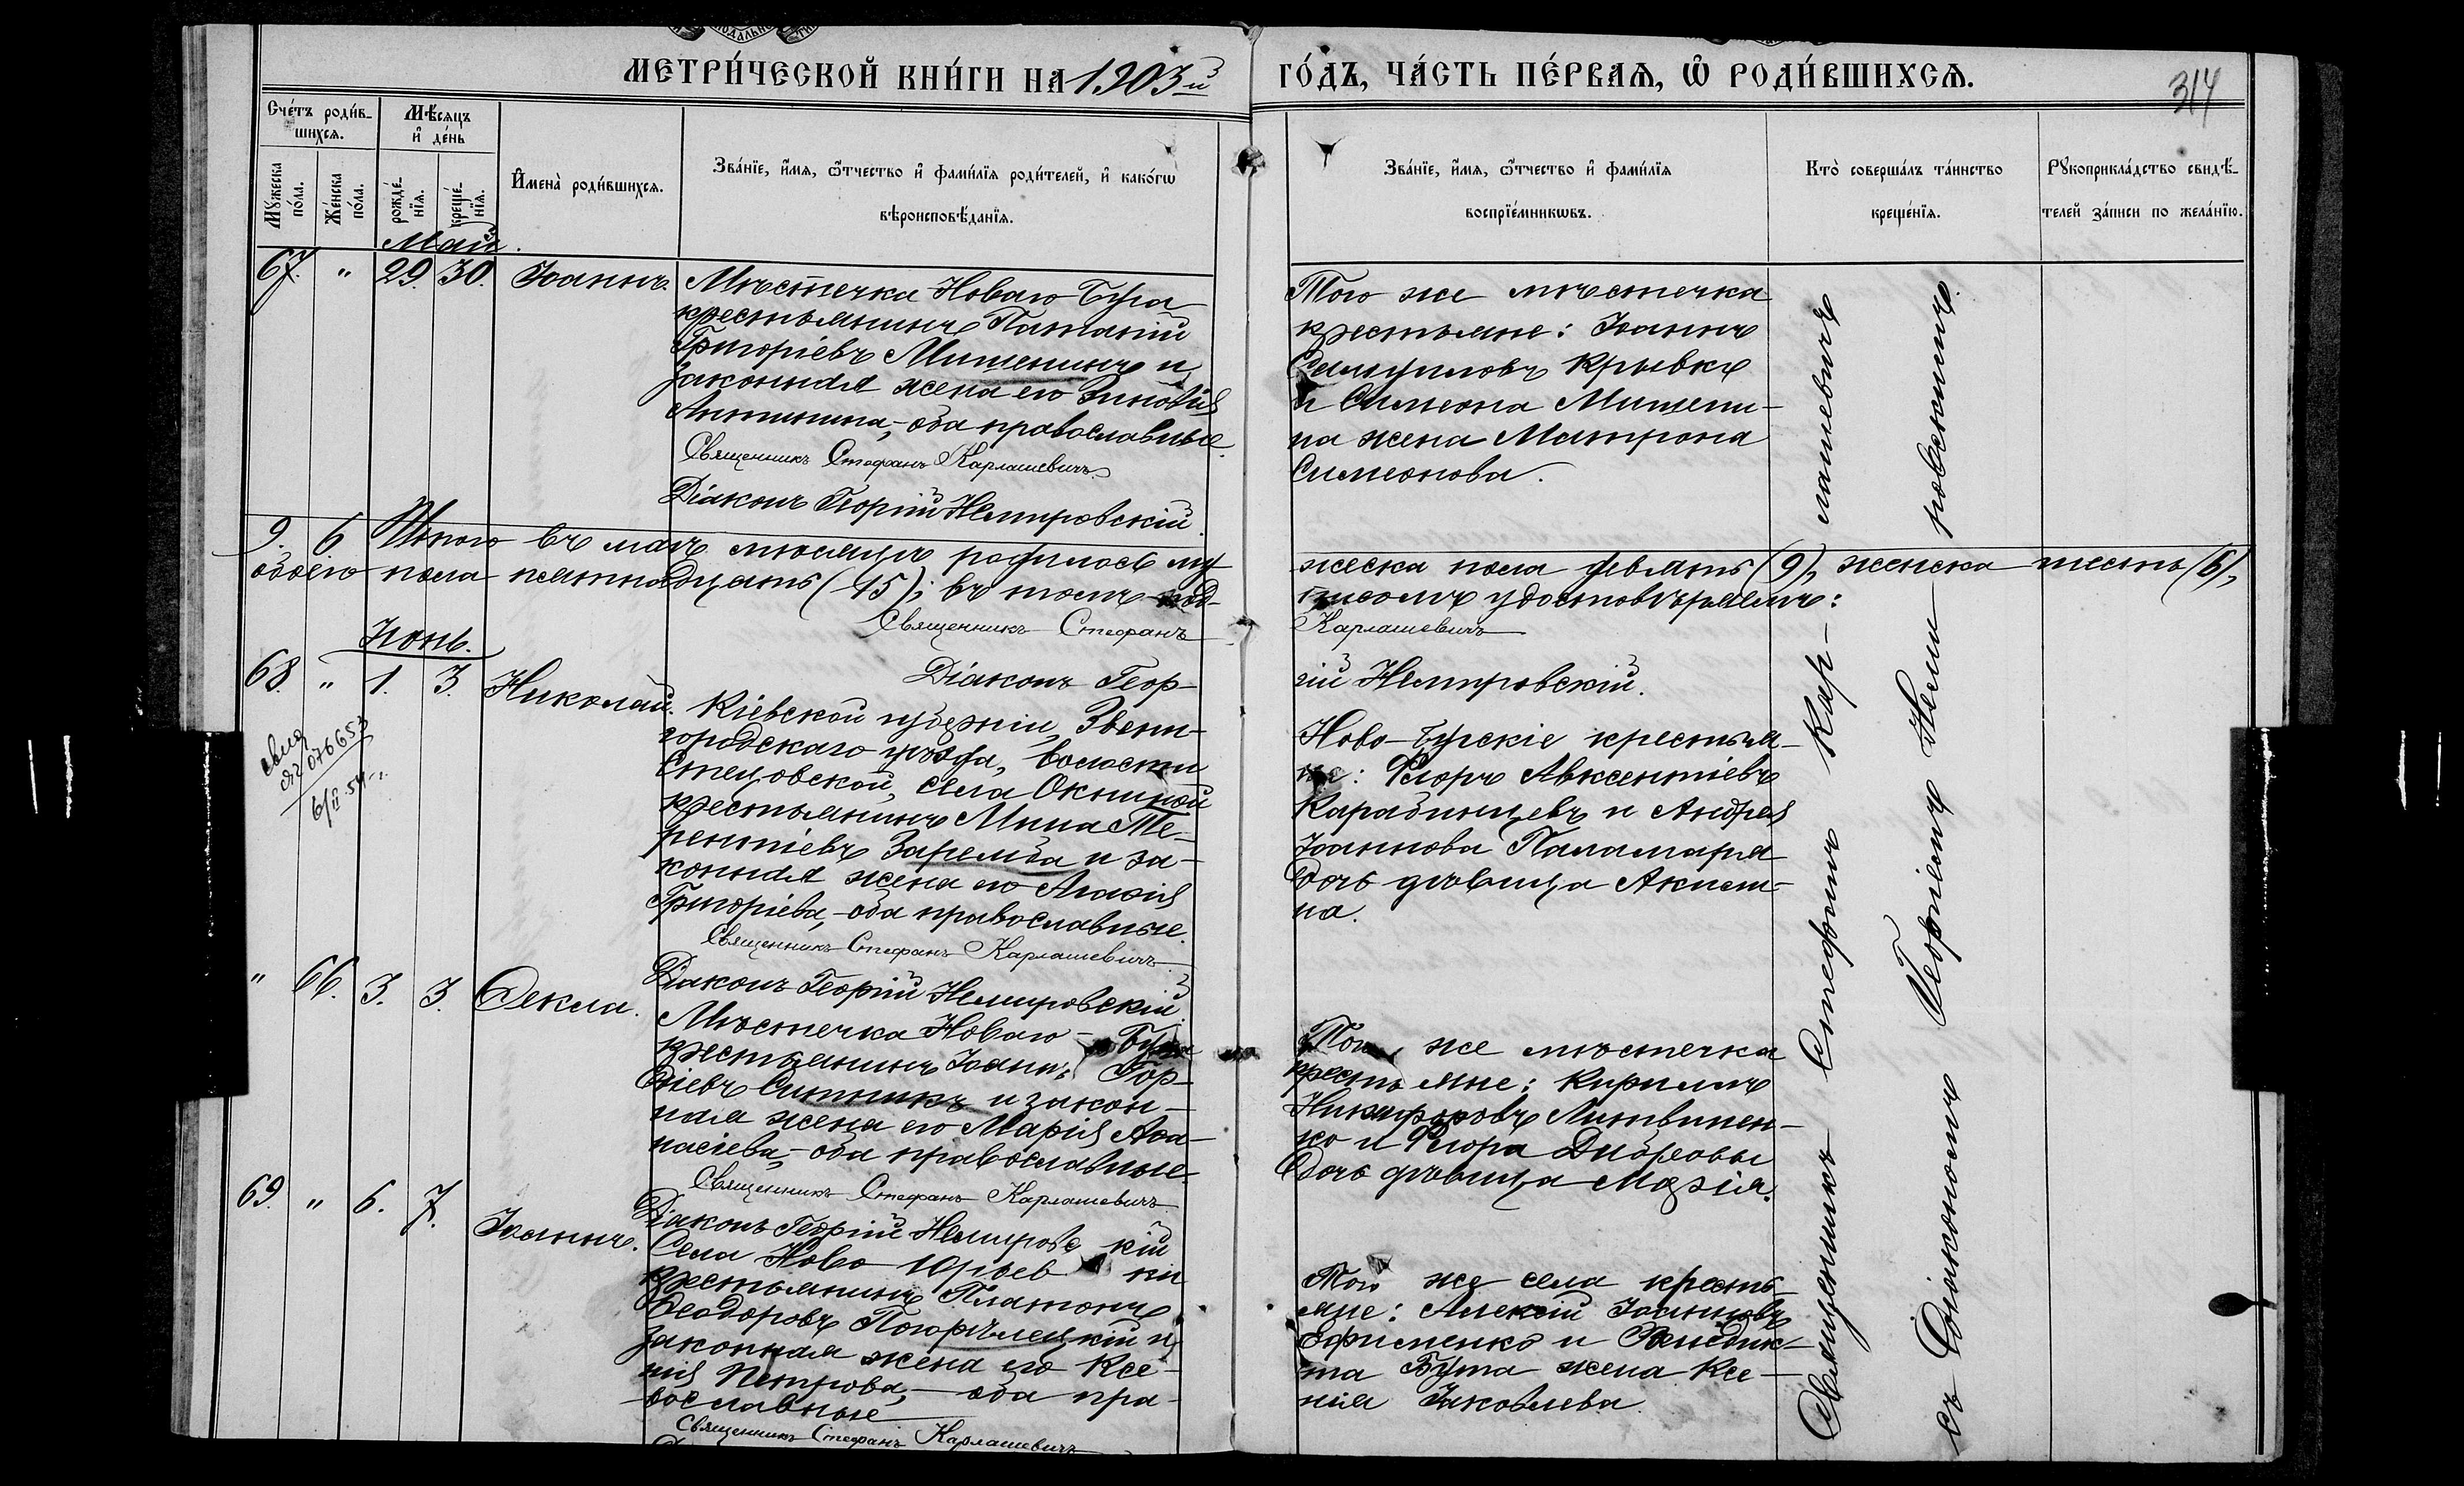 МЕТРИ́ЧЕСКОЙ КНИ́ГИ НА 1903-й ГО́ДЪ, ЧА́СТЬ ПЕ́РВАЯ, Ѿ РОДИ́ВШИХСЯ.
314
Сче́тъ роди́в-
шихся.
Мѣ́сяцъ
и҆ де́нь
Мꙋ́жеска
по́ла.
Же́нска
по́ла.
рожде́-
нїѧ.
креще́-
нїѧ.
И҆мена̀ роди́вшихсѧ.
Зва́нїе, и҆́мѧ, ѻ҆́тчество и҆ фами́лїѧ роди́телей, и҆ како́гѡ
вѣроисповѣ́данїѧ.
Зва́нїе, и҆́мѧ, ѻ҆́тчество и҆ фами́лїѧ
воспрїе́мникѡвъ.
Кто̀ соверша́лъ та́инство
креще́нїѧ.
Рꙋкоприкла́дство свидѣ́-
телей за́писи по жела́нїю.
Май.
67. " 29. 30. Іоаннъ.
Мѣстечка Новаго Буга
крестьянинъ
Григоріевъ Мишенинъ и
законная жена его Зиновія
Антонина, оба православные.
Священникъ Стефанъ Карлашевичъ.
Діаконъ Георгій Немировскій
Того же мѣстечка
крестьяне: Іоаннъ
Самуиловъ Крывко
и Симеона Мишени-
на жена Матрона
Симеонова.
9. 6 Итого въ маѣ мѣсяцѣ родилось му- жеска пола девять (9), женска шесть (6),
обоего пола пятнадцать (15); въ томъ под- писомъ удостовѣряемъ:
Священникъ Стефанъ Карлашевичъ
Діаконъ Геор- гій Немировскій.
Іюнь.
68. " 1. 3. Николай.
076653
Кіевской губерніи, Звени-
городскаго уѣзда, волости
Стецовской, села Окниной
крестьянинъ Мина Те-
рентіевъ Заремба и за-
конная жена его Агафія
Григоріева, - оба православные.
Священникъ Стефанъ Карлашевичъ.
Діаконъ Георгій Немировскій.
Ново-Бугскіе крестья-
не: Флоръ Авксентіевъ
Карабинцевъ и Андрея
Іоаннова Паламаря
дочь дѣвица Акили-
на.
" 66. 3. 3. Ѳекла.
Мѣстечка Новаго-Буга
крестьянинъ Іоаннъ Гор-
діевъ Ситникъ и закон-
ная жена его Марія Аѳа-
насіева, - оба православные
Священникъ Стефанъ Карлашевичъ
Діаконъ Георгій Немировскій
Того же мѣстечка
крестьяне: Кириллъ
Никифоровъ Литвинен-
ко и Флора Диброва
дочь дѣвица Марія.
69. " 6. 7. Іоаннъ.
Села Ново Юрьевки
крестьянинъ Платонъ
Ѳеодоровъ Погорѣлецкій и
законная жена его Ксе-
нія Петрова, - оба пра-
вославные
Священникъ Стефанъ Карлашевичъ
Того же села кресть-
яне: Алексій Іоанновъ
Ефименко и Венедик-
та Бута жена Ксе-
нія Іаковлева.
Священникъ Стефанъ Кар-лашевичъ
съ Діакономъ Георгіемъ Неми-ровскимъ.